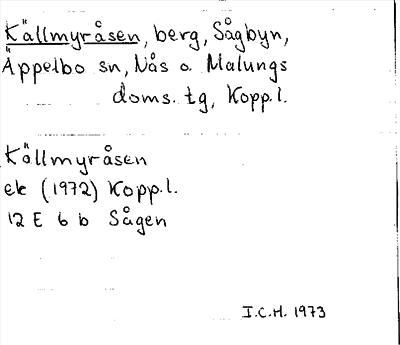 Källmyråsen, berg, Sågbyn,
Äppelbo sn, Nås o. Malungs
doms. tg, Kopp.l.
Källmyråsen
ek (1972) Kopp.l.
12 E 6 b Sågen
I.C.H. 1973